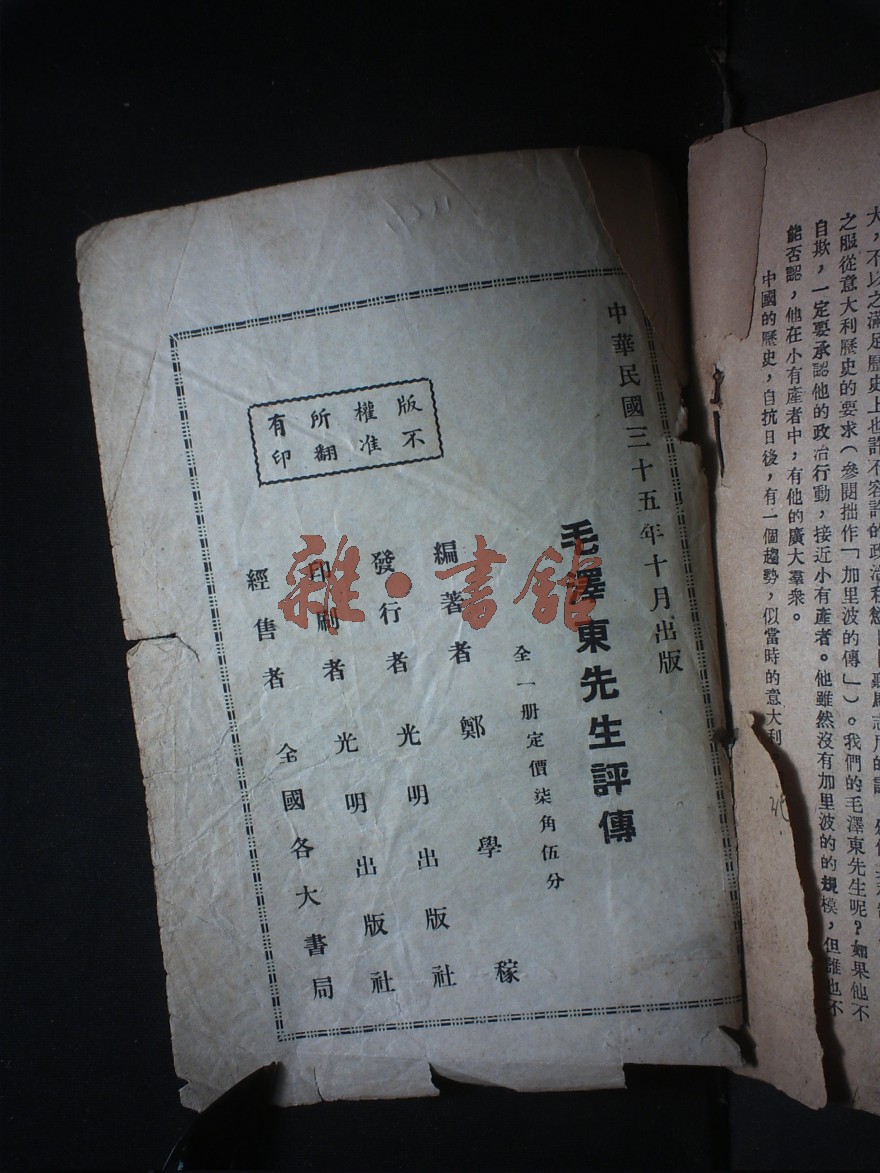 大，不以之滿足歷史上也許不容許的政治
之服從意大利歷史的要求（參閱拙作「加里波的傳」）。我們的毛澤東先生呢？如果他不
自欺，一定要承認他的政治行動，接近小有產者。他雖然沒有加里波的的規模，但誰也不
能否認，他在小有產者中，有他的廣大羣衆。
中國的歷史，自抗日後，有一個趨勢，似當時的意大利
中華民國三十五年十月出版
毛澤東先生評傳
全一册定價柒角伍分
編著者 鄭學稼
發行者 光明出版社
印刷者 光明出版社
經售者 全國各大書局
版權所有
不准翻印
雜·書館